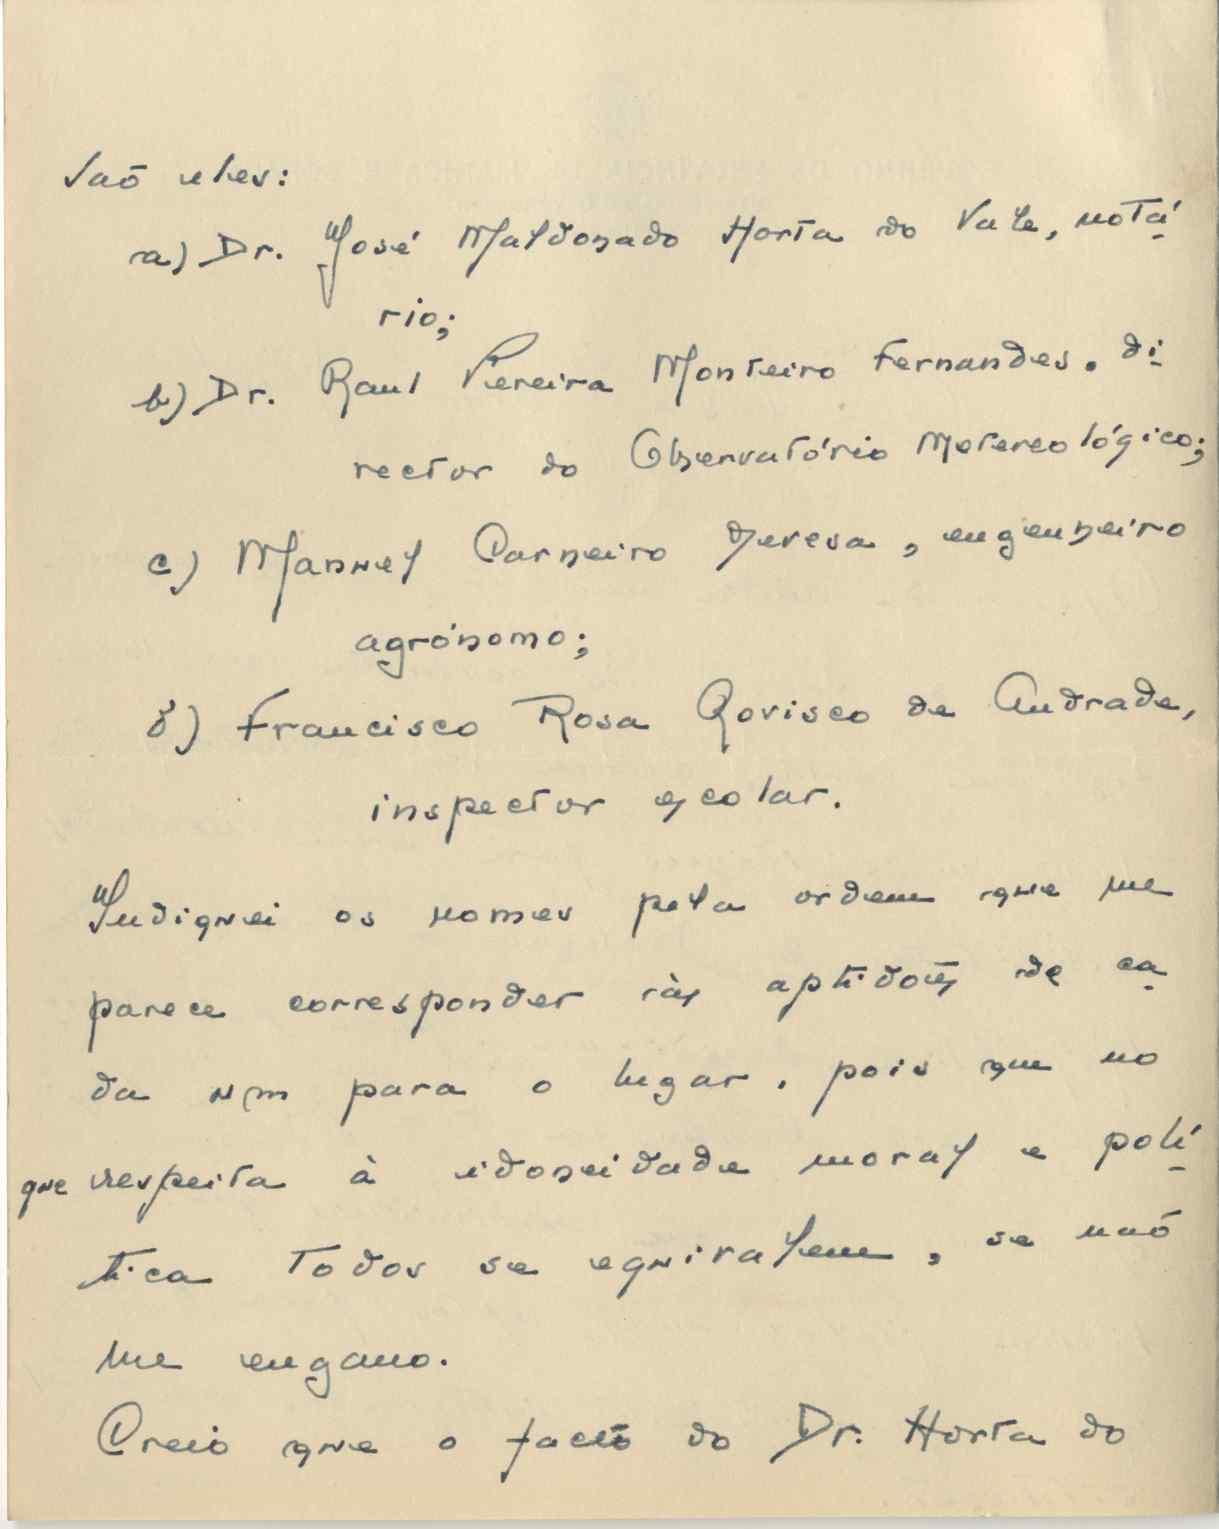 São eles:
a) Dr. José Maldonado Horta do Vale, notá-
rio;
b) Dr. Raul Pereira Monteiro Fernandes, di-
rector do Observatório Metereológico;
c) Manuel Carneiro, engenheiro
agrónomo;
d) Francisco Rosa Rovisco de Andrade,
inspector escolar.
Indiquei os nomes pela ordem que me
parece corresponder às aptidões de ca-
da um para o lugar, pois que no
que respeita à idoneidade moral e polí-
tica todos se equivalem, se não
me engano.
Creio que o facto do Dr. Horta do